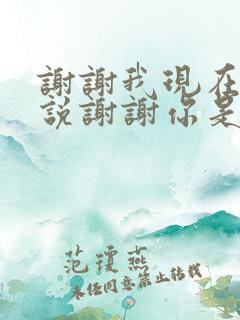 謝謝我現在
說謝謝你是
范瓊燕
未經同意禁止轉載